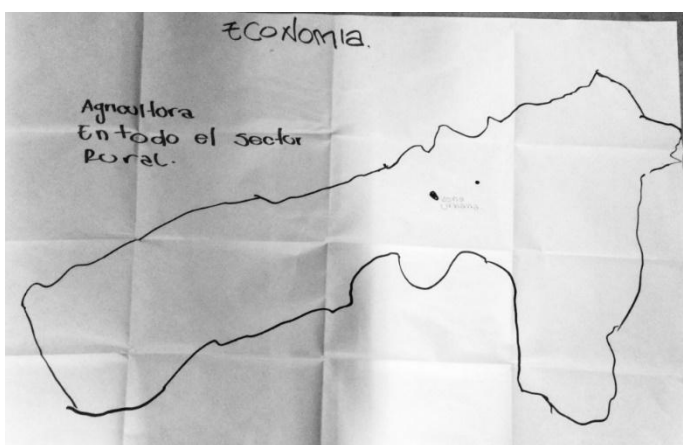 ECONOMIA.
Agricultora
En todo el sector
Rural.
zona
Urbana